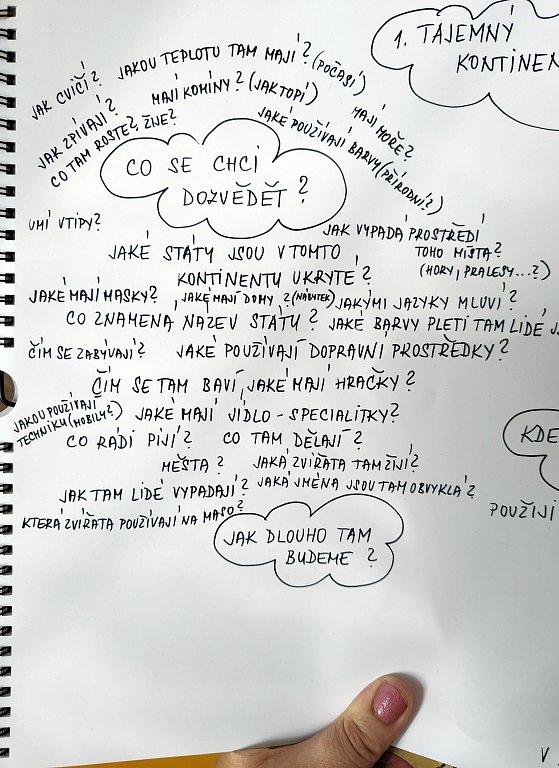 1. TAJEMNÝ
KONTINEN
JAK CVIČÍ?
JAKOU TEPLOTU TAM MAJÍ? (POČASÍ)
JAK ZPÍVAJÍ?
MAJÍ KOMÍNY? (JAK TOPÍ)
MAJÍ MOŘE?
CO TAM ROSTE?, ŽNE?
JAKÉ POUŽÍVAJÍ BARVY (PŘÍRODNÍ?)
CO SE CHCI
DOZVĚDĚT?
UMÍ VTIPY?
JAK VYPADÁ PROSTŘEDÍ
TOHO MÍSTA?
(HORY, PRALESY...?)
JAKÉ STÁTY JSOU V TOMTO
KONTINENTU UKRYTÉ?
JAKÉ MAJÍ MASKY?
JAKÉ MAJÍ DOMY? (NÁBYTEK)
JAKÝMI JAZYKY MLUVÍ?
CO ZNAMENÁ NÁZEV STÁTU?
JAKÉ BARVY PLETI TAM LIDÉ
ČÍM SE ZABÝVAJÍ?
JAKÉ POUŽÍVAJÍ DOPRAVNÍ PROSTŘEDKY?
ČÍM SE TAM BAVÍ, JAKÉ MAJÍ HRAČKY?
JAKOU POUŽÍVAJÍ
TECHNIKU (MOBILY?)
JAKÉ MAJÍ JÍDLO - SPECIALITKY?
CO RÁDI PIJÍ?
CO TAM DĚLAJÍ?
KDE
MĚSTA?
JAKÁ ZVÍŘATA TAM ŽIJÍ?
JAK TAM LIDÉ VYPADAJÍ?
JAKÁ JMÉNA JSOU TAM OBVYKLÁ?
KTERÁ ZVÍŘATA POUŽÍVAJÍ NA MASO?
POUŽIJI
JAK DLOUHO TAM
BUDEME?
V